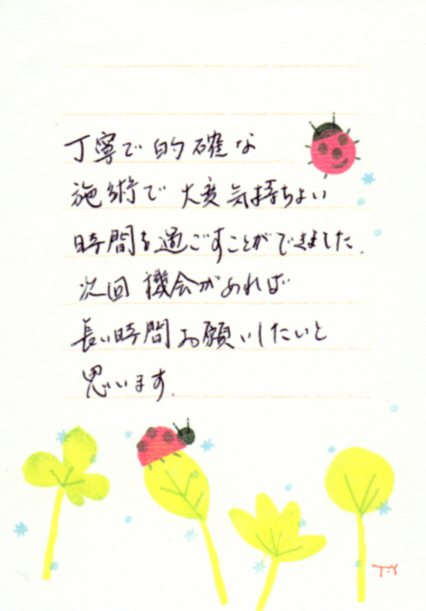 丁寧で的確な
施術で大変気持ちよい
時間を過ごすことができました.
次回機会があれば
長い時間お願いしたいと
思います.
T.Y